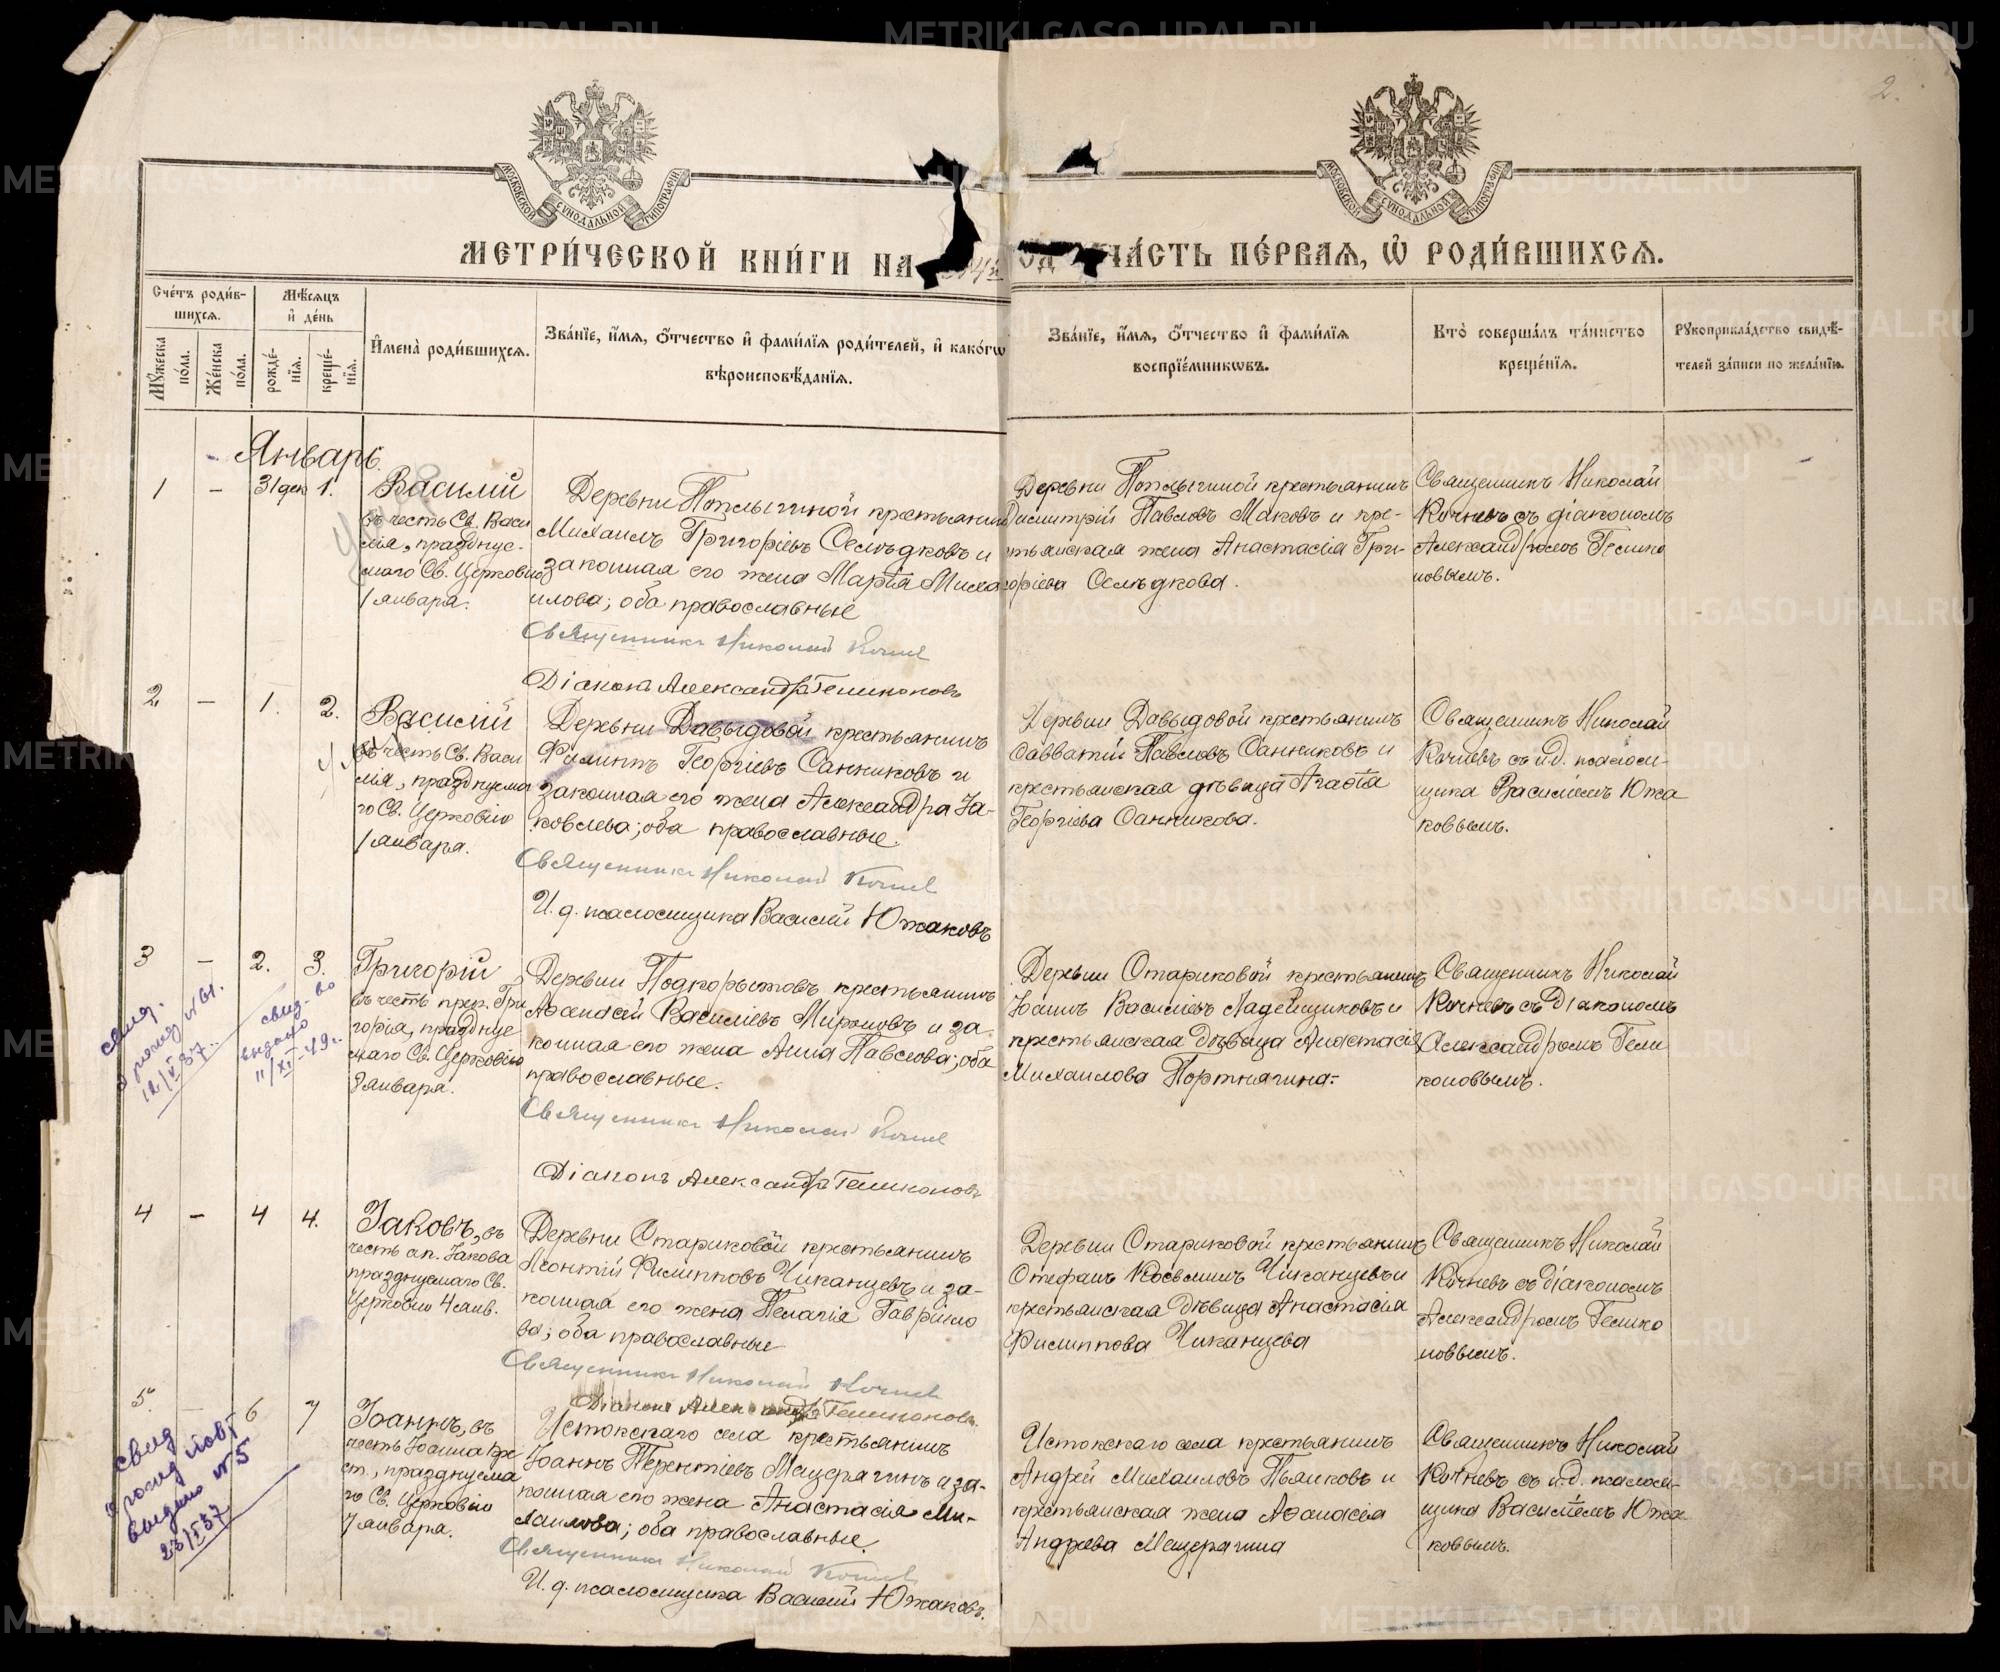 2.
МОСКОВСКОЙ СУНОДАЛЬНОЙ ТИПОГРАФІИ
МОСКОВСКОЙ СУНОДАЛЬНОЙ ТИПОГРАФІИ
МЕТРИ́ЧЕСКОЙ КНИ́ГИ НА
ЧА́СТЬ ПЕ́РВАЯ, Ѽ РОДИ́ВШИХСЯ.
Сче́тъ роди́в-
шихся.
Мѣ́сяцъ
и҆ де́нь
Му́жеска
по́ла.
Же́нска
по́ла.
рожде́-
нїя.
креще́-
нїя.
И҆мена̀ роди́вшихся.
Зва́нїе, и҆́мя, ѻ҆́тчество и҆ фамі́лїя роди́телей, и҆ како́гѡ
вѣроисповѣ́данїя.
Зва́нїе, и҆́мя, ѻ҆́тчество и҆ фамі́лїя
воспрїе́мникѡвъ.
Кто̀ соверша́лъ та́инство
креще́нїя.
Рукоприкла́дство свидѣ́-
телей за́писи по жела́нїю.
Январь.
1 - 31 дек 1.
Василій
въ честь Св. Васи
лія, праздnуе-
маго Св. Церковію
1 января.
Деревни Потлыгиной крестьянин
Михаилъ Григоріевъ Селѣдковъ и
законная его жена Марѳа Миха
илова; оба православные
Священникъ Николай Кочнев
Діаконъ Александръ Геликоновъ
Деревни Потлыгиной крестьянинъ
Димитрій Павловъ Маковъ и кре-
стьянская жена Анастасія Гри-
горіева Селѣдкова.
Священникъ Николай
Кочневъ съ діакономъ
Александромъ Гелико
новымъ.
2 - 1. 2.
Василій
въ честь Св. Васи
лія, праздnуема
го Св. Церковію
1 января.
Деревни Давыдовой крестьянинъ
Филиппъ Георгіевъ Санниковъ и
законная его жена Александра Іа-
ковлева; оба православные.
Священникъ Николай Кочнев
И. д. псаломщика Василій Южаковъ
Деревни Давыдовой крестьянинъ
Савватій Павловъ Санниковъ и
крестьянская дѣвица Агаѳія
Георгіева Санникова.
Священникъ Николай
Кочневъ съ и.д. псалом-
щика Василіемъ Южа
ковымъ.
3 - 2. 3.
Григорій
въ честь преп. Гри
горія, праздnуе
маго Св. Церковію
8 января.
Деревни Подкорытовъ крестьянинъ
Аѳанасій Василіевъ Мироновъ и за-
конная его жена Анна Павлова; оба
православные.
Священникъ Николай Кочнев
Діаконъ Александръ Геликоновъ
Деревни Стариковой крестьянинъ
Іоаннъ Василіевъ Ладейщиковъ и
крестьянская дѣвица Анастасія
Михаилова Портнягина.
Священникъ Николай
Кочневъ съ діакономъ
Александромъ Гели
коновымъ.
12/V 37.
свид-во
выдано
11/XI-49г.
4 - 4 4.
Іаковъ, въ
честь ап. Іакова
празднуемаго Св.
Церковію 4 янв.
Деревни Стариковой крестьянинъ
Леонтій Филипповъ Чиканцевъ и за-
конная его жена Пелагія Гавріило
ва; оба православные
Священникъ Николай Кочнев
Діаконъ Александръ Геликоновъ.
Деревни Стариковой крестьянинъ
Стефанъ Косьминъ Чиканцевъ и
крестьянская дѣвица Анастасія
Филиппова Чиканцева
Священникъ Николай
Кочневъ съ діакономъ
Александромъ Гелико
новымъ.
5. - 6 7
Іоаннъ, въ
честь Іоанна Кре
ст., праздnуема
го Св. Церковію
7 января.
Истокскаго села крестьянинъ
Іоаннъ Терентіевъ Мещерягинъ и за-
конная его жена Анастасія Ми-
хаилова; оба православные.
Священникъ Николай Кочнев
И. д. псаломщика Василій Южаковъ.
Истокскаго села крестьянинъ
Андрей Михаиловъ Пьянковъ и
крестьянская жена Аѳанасія
Андреева Мещерягина
Священникъ Николай
Кочневъ съ и.д. псалом-
щика Василіемъ Южа-
ковымъ.
свид
о рожд
выдано №5
23/I 37
METRIKI.GASO-URAL.RU